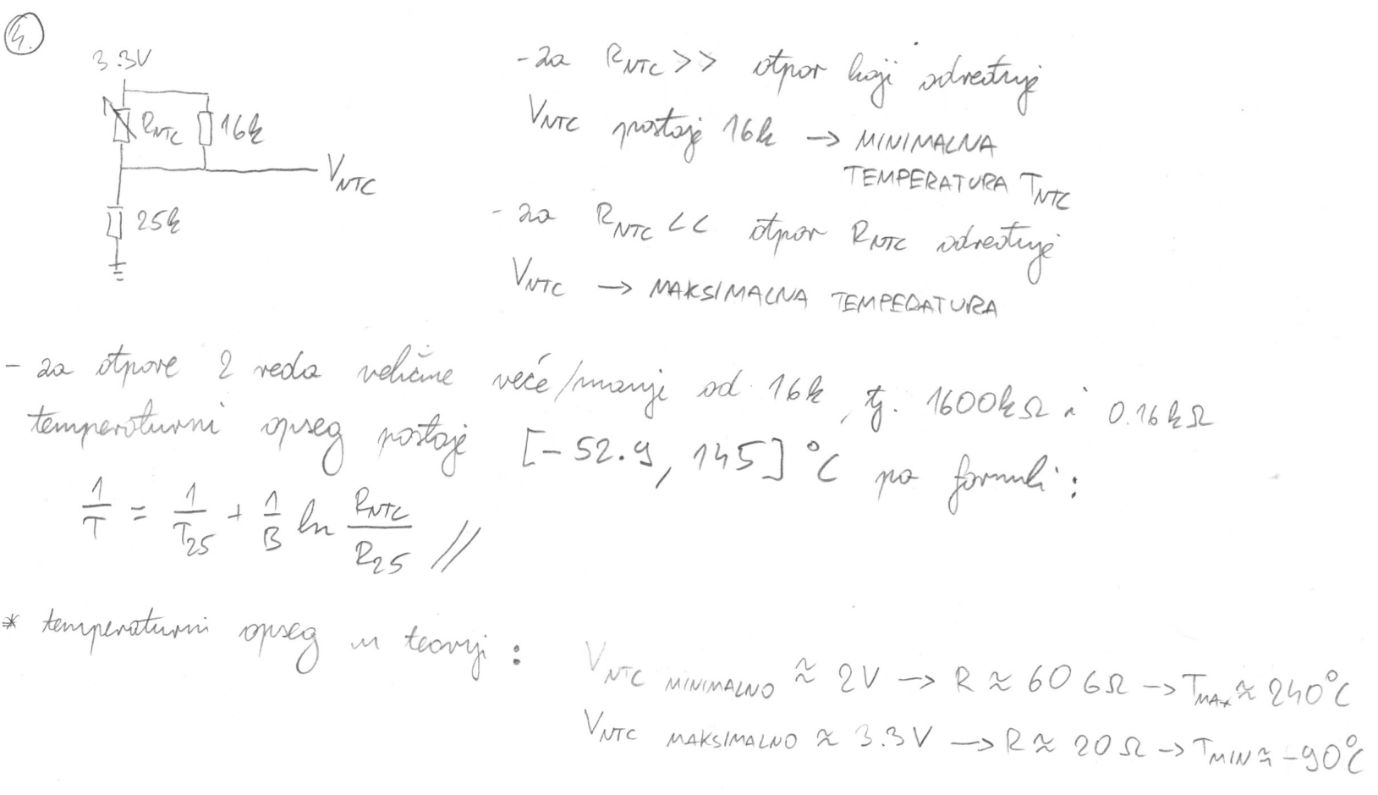 4.
3.3V
RNTC 16k
VNTC
25k
- za RNTC >> otpor koji određuje
VNTC postaje 16k → MINIMALNA
TEMPERATURA TNTC
- za RNTC << otpor RNTC određuje
VNTC → MAKSIMALNA TEMPERATURA
- za otpore 2 reda veličine veće/manje od 16k, tj. 1600kΩ i 0.16kΩ
temperaturni opseg postaje [-52.9, 145] °C po formuli:
1/T = 1/T25 + 1/B ln RNTC/R25 //
* temperaturni opseg u teoriji: VNTC MINIMALNO ≈ 2V → R ≈ 60 GΩ → TMAX ≈ 240°C
VNTC MAKSIMALNO ≈ 3.3V → R ≈ 20Ω → TMIN ≈ -90°C